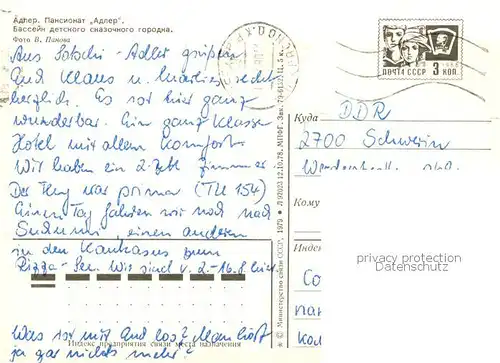 Адлер. Пансионат „Адлер".
Бассейн детского сказочного городка.
Фото В. Панова
Aus Sotschi-Adler grüßen
Euch Klaus u. Marlies recht
herzlich. Es ist hier ganz
wunderbar. Ein ganz Klasse
Hotel mit allem Komfort.
Wir haben ein 2-Bett Zimmer
Der Flug war prima (TU 154)
Einen Tag fahren wir noch nach
Suchumi, einen anderen
in den Kaukasus zum
Rizza-See. Wir sind v. 2.-16.8. hier.
Was ist mit Euch los? Man hört
ja gar nichts mehr?
Индекс предприятия связи места назначения
© Министерство связи СССР, 1979
ПОЧТА СССР
Куда
DDR
2700 Schwerin
Кому
Индекс
privacy protection
Datenschutz
Со
пан
кол